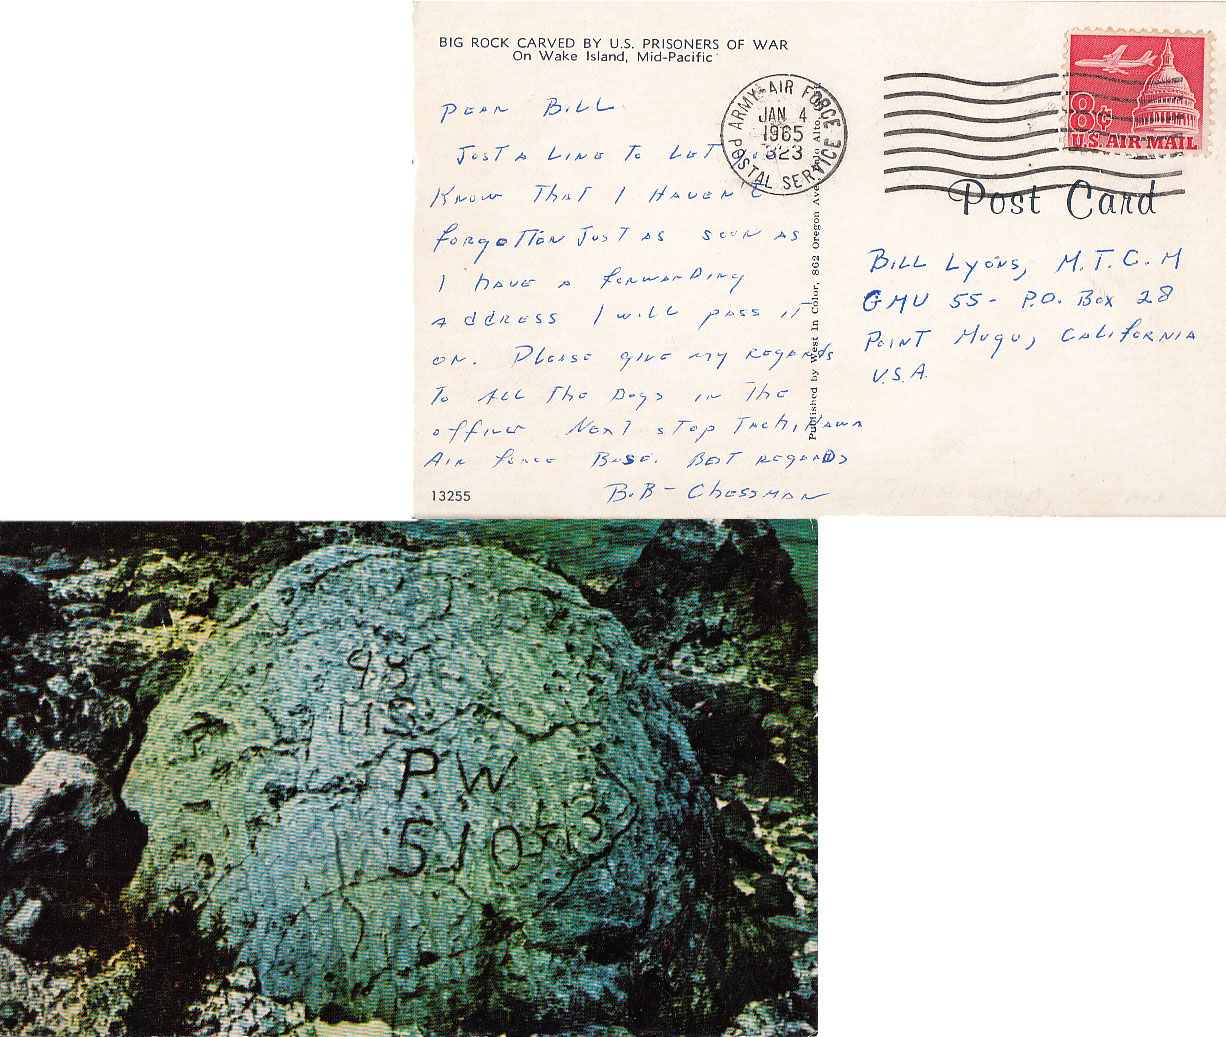 BIG ROCK CARVED BY U.S. PRISONERS OF WAR
On Wake Island, Mid-Pacific
DEAR BILL
JUST A LINE TO LET
KNOW THAT I HAVEN'T
FORGOTTEN JUST AS SOON AS
I HAVE A FORWARDING
ADDRESS I WILL PASS IT
ON. PLEASE GIVE MY REGARDS
TO ALL THE DOGS IN THE
OFFICE NEXT STOP TACHIKAWA
AIR FORCE BASE. BEST REGARDS
BOB - CHESSMAN
13255
ARMY-AIR FORCE POSTAL SERVICE
JAN 4
1965
823
Published by West In Color, 862 Oregon Ave Palo Alto
8¢
U.S. AIR MAIL
Post Card
BILL LYONS, M.T.C.M
GMU 55 - P.O. BOX 28
POINT MUGU, CALIFORNIA
U.S.A.
98
US
PW
5·10·43